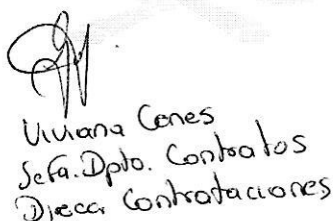 Viviana Cenes
Jefa. Dpto. Contratos
Direcc. Contrataciones